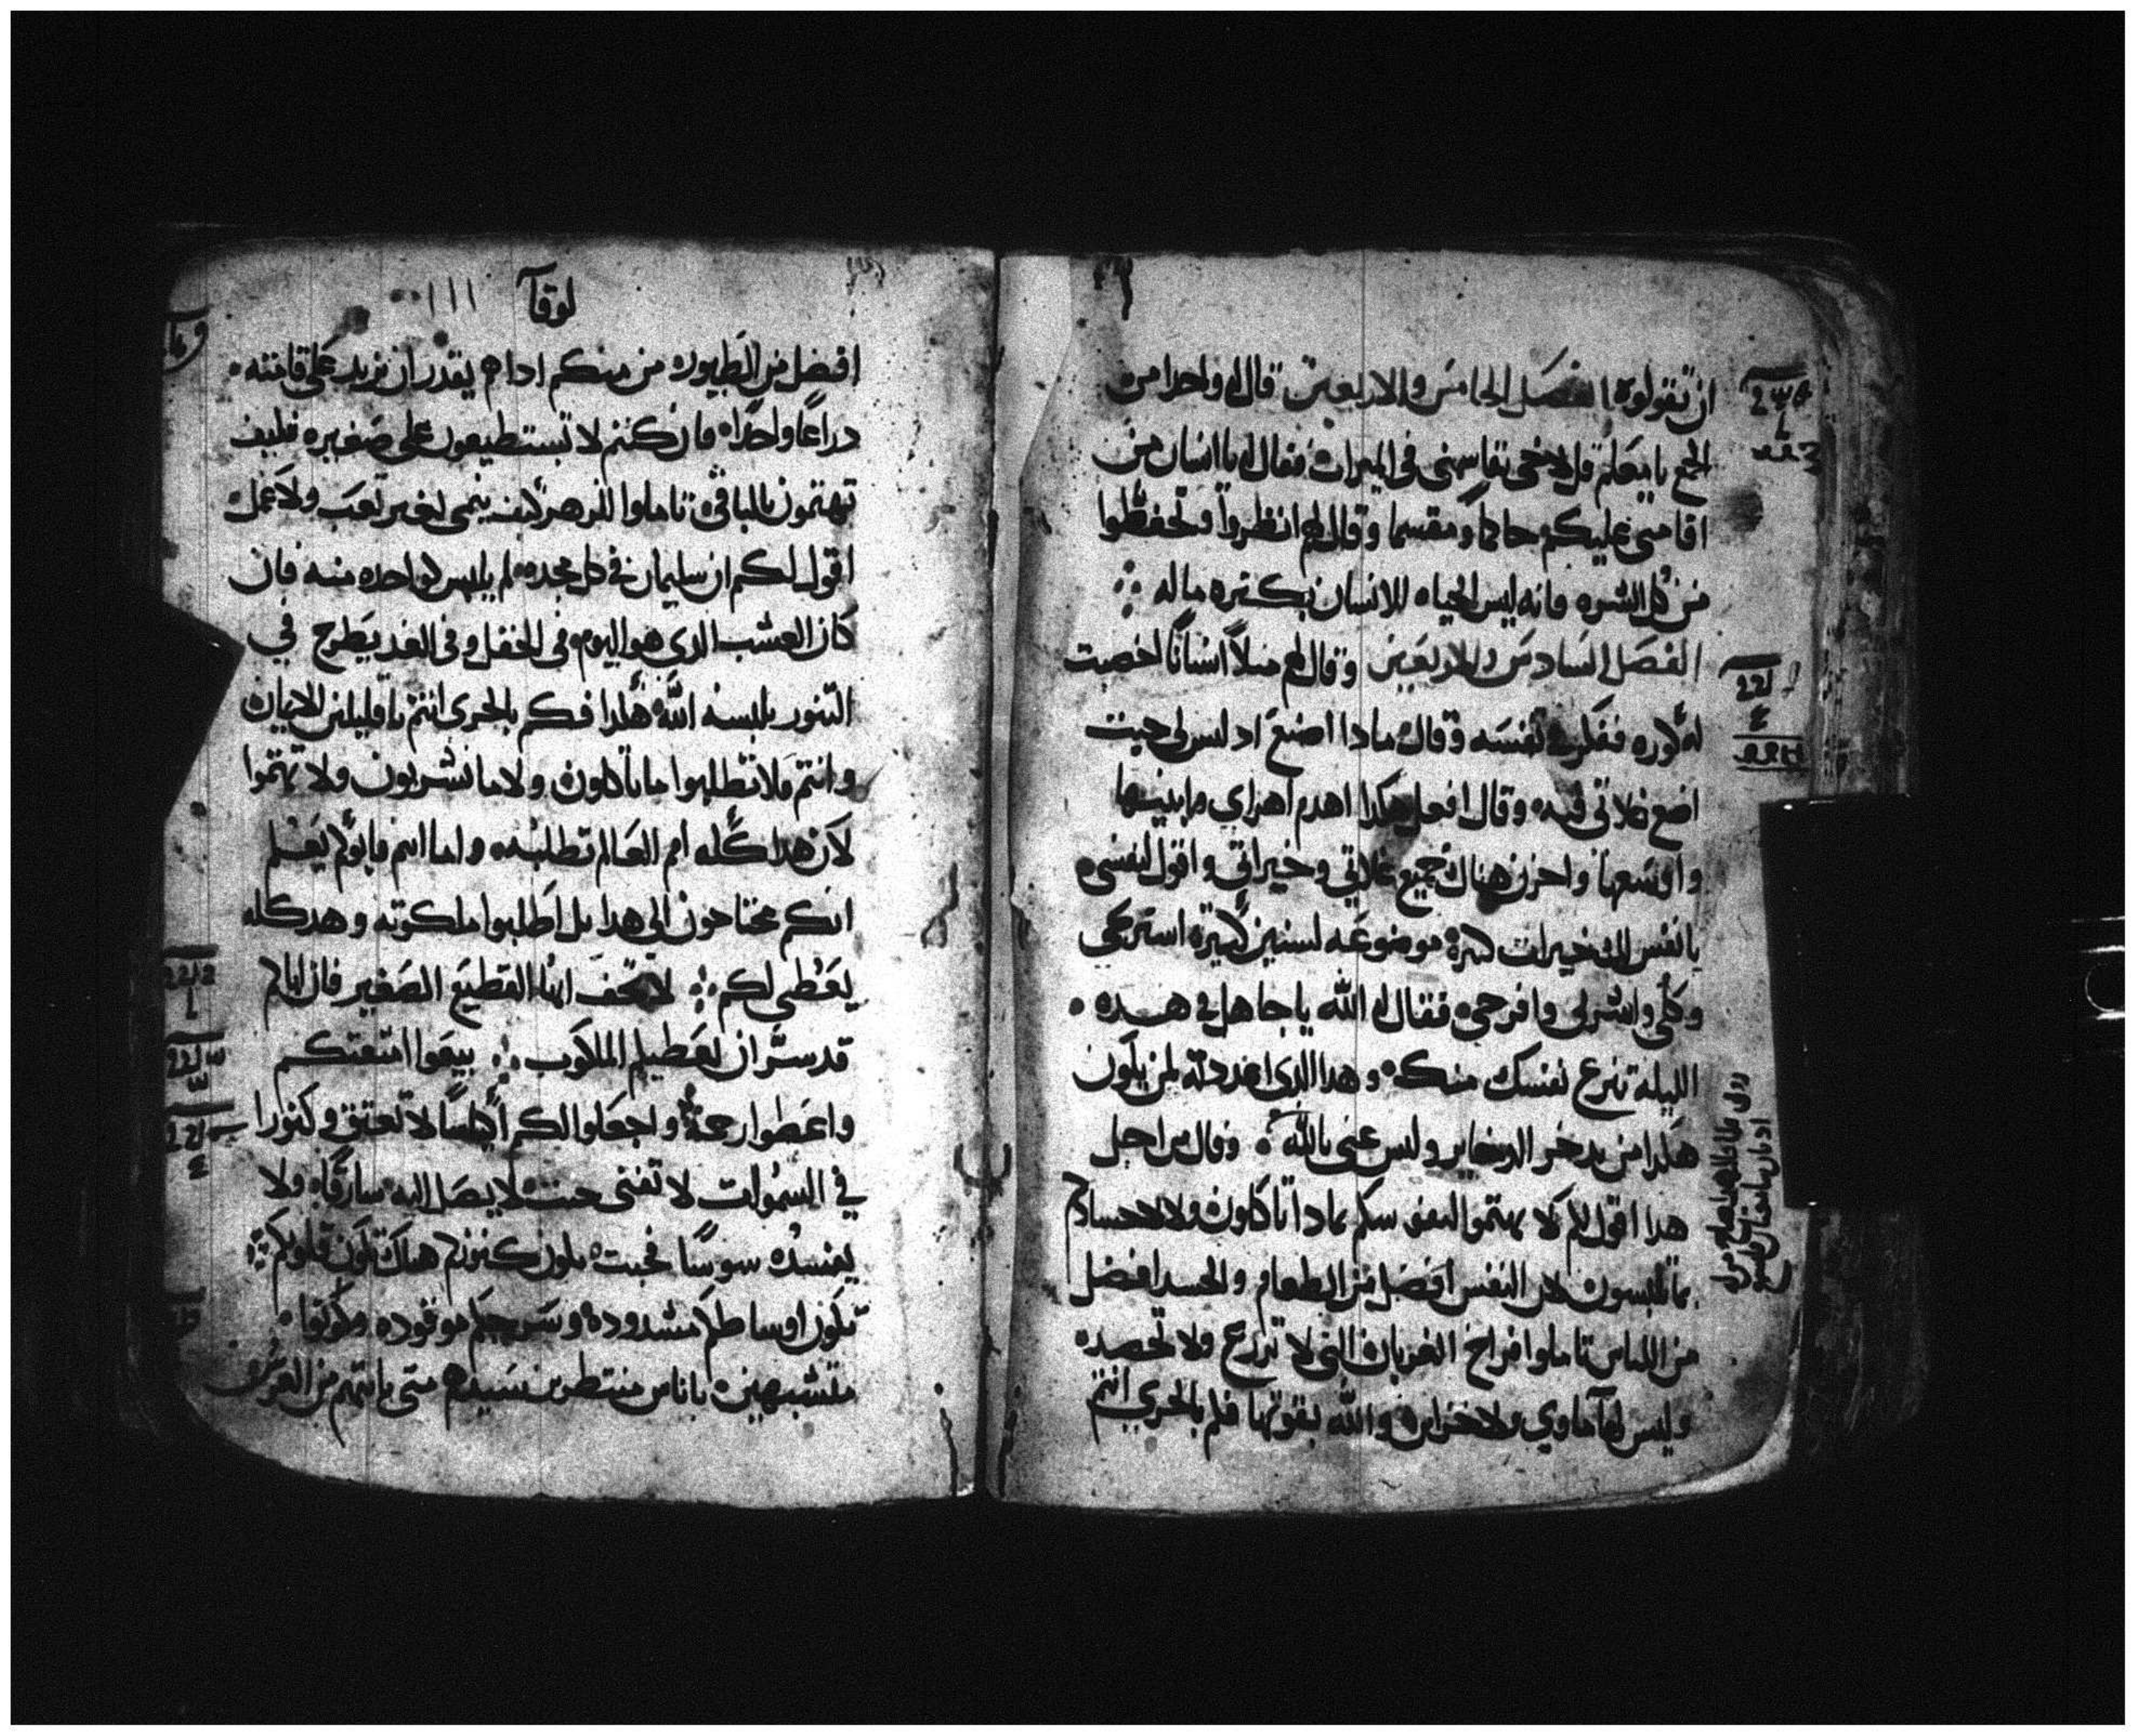 ان تقولوه الفصل الخامس والاربعين قال له واحدا من
الجمع يا معلم قل لاخي يقاسمني في الميراث فقال له يا انسان من
اقامني عليكم حاكما ومقسما وقال لهم انظروا وتحفظوا
من كل الشره فانه ليس الحياه للانسان بكتره ماله
الفصل السادس والاربعين وقال لهم مثلا انسانا اخصبت
له كوره ففكر في نفسه وقال مادا اصنع اد ليس لي حيت
اضع غلاتي فيه وقال افعل هكدا اهدم اهراي وابنيها
واوسعها واحزن هناك جميع غلاتي وخيراتي واقول لنفسي
يا نفس لك خيرات كتيرة موضوعه لسنين كتيرة استريحي
وكلي واشربي وافرحي فقال له الله يا جاهل في هده
الليله تنزع نفسك منك وهدا الدي اعددته لمن يكون
هكدا من يدخر الدخاير وليس غني بالله وقال من اجل
هدا اقول لكم لا يهتموا لنفوسكم بمادا تاكلون ولا لاجسادكم
بما تلبسون لان النفس افضل من الطعام والجسد افضل
من اللباس تاملوا افراخ الغربان التي لا تزرع ولا تحصد
وليس لها ماوي ولا خزاين والله يقوتها فكم بالحري انتم
لوقا
افضل من الطيور من منكم ادا هم يقدر ان يزيد على قامته
دراعا واحدا فان كنتم لا تستطيعون على صغيره فكيف
تهتمون بالباقي تاملوا الزهر كيف ينمي لغير تعب ولا عمل
اقول لكم ان سليمان في كل مجده لم يلبس كواحده منه فان
كان العشب الدي هو اليوم في الحقل وفي الغد يطرح في
التنور يلبسه الله هكدا فكم بالحري انتم يا قليلين الايمان
وانتم فلا تطلبوا ما تاكلون ولا ما تشربون ولا تهتموا
لان هدا كله امم العالم تطلبه واما انتم فابوكم يعلم
انكم محتاجون الى هدا بل اطلبوا ملكوته وهدا كله
يعطي لكم لا تخف ايها القطيع الصغير فان اباكم
قد سر ان يعطيكم الملكوت بيعوا امتعتكم
واعطوا رحمة واجعلوا لكم اكياسا لا تعتق وكنوزا
في السموات لا تفنى حيت لا يصل اليه سارقا ولا
يفسده سوسا فحيت يكون كنزكم هناك تكون قلوبكم
تكون اوساطكم مشدوده وسرجكم موقوده وكونوا
متشبهين باناس منتظرين سيدهم متى ياتيهم من العرس